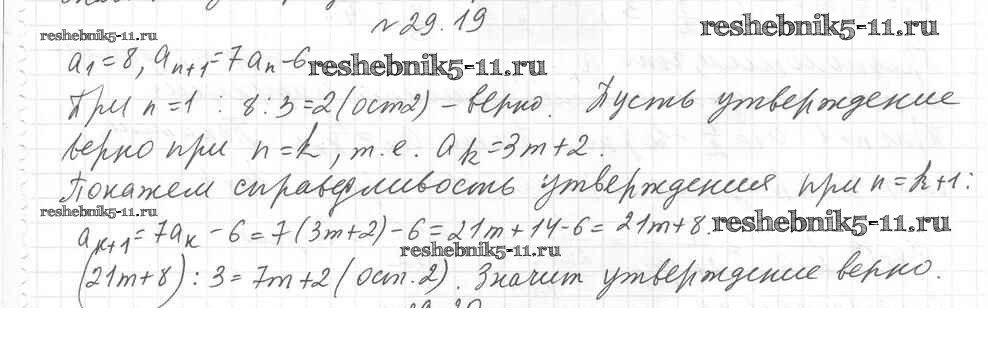 №29.19
reshebnik5-11.ru
reshebnik5-11.ru
a₁=8, aₙ₊₁=7aₙ-6 reshebnik5-11.ru
При n=1 : 8:3=2(ост2) - верно. Пусть утверждение
верно при n=k, т.е. aₖ=3m+2.
Покажем справедливость утверждения при n=k+1:
reshebnik5-11.ru
aₖ₊₁=7aₖ-6=7(3m+2)-6=21m+14-6=21m+8. reshebnik5-11.ru
reshebnik5-11.ru
(21m+8):3=7m+2(ост.2). Значит утверждение верно.